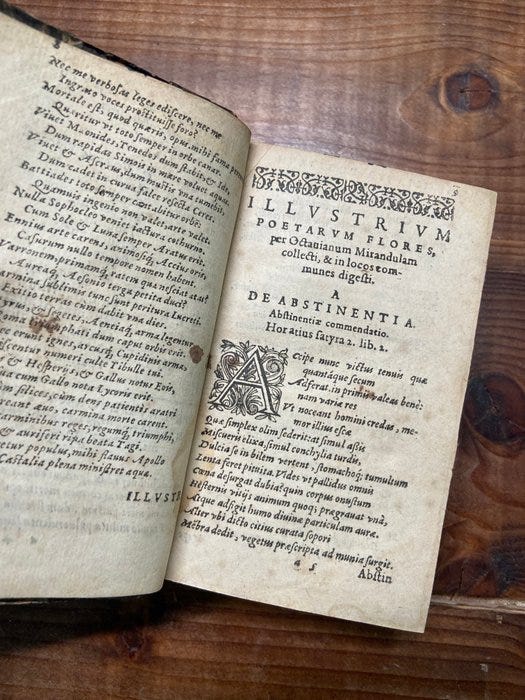 Nec me verbosas leges ediscere, nec me
Ingrato voces prostituisse foro?
Mortale est, quod quæris, opus, mihi fama
Quæritur vt toto semper in orbe canar.
Viuet Mæonides, Tenedos dum stabit, & Ide,
Dum rapidas Simois in mare voluet aquas.
Viuet & Ascræus, dum mustis vua tumebit,
Dum cadet in curua falce resecta Ceres.
Battiades toto semper cantabitur orbe:
Quamuis ingenio non valet, arte valet.
Nulla Sophocleo veniet iactura cothurno,
Cum Sole & Luna semper Aratus erit.
Ennius arte carens, animosiq; Accius oris,
Casurum nullo tempore nomen habent.
Varronem, primamq; ratem quæ nesciat ætas?
Aureaq; Æsonio terga petita duci?
armina sublimis tunc sunt peritura Lucreti,
Exitio terras cum dabit vna dies.
& segetes, Æneiaq; arma legentur,
triumphati dum caput orbis erit.
erunt ignes, arcusq; Cupidinis arma,
scentur numeri culte Tibulle tui.
& Hesperijs, & Gallus notus Eois,
ua cum Gallo nota Lycoris erit.
silices, cum dens patientis aratri
reant æuo, carmina morte carent.
arminibus reges, regumq; triumphi,
& auriferi ripa beata Tagi.
etur populus, mihi flauus Apollo
Castalia plena ministret aqua.
ILLVSTR
ILLVSTRIVM
POETARVM FLORES,
per Octauianum Mirandulam
collecti, & in locos com-
munes digesti.
A
DE ABSTINENTIA.
Abstinentiæ commendatio.
Horatius satyra 2. lib. 2.
Accipe nunc victus tenuis quæ
quantáque secum
Adferat. in primis valeas benè:
nam variæ res
Vt noceant homini credas, me-
mor illius escæ
Quæ simplex olim sederit: at simul assis
Miscueris elixa, simul conchylia turdis,
Dulcia se in bilem vertent, stomachoq; tumultum
Lenta feret pituita. Vides vt pallidus omnis
Cœna desurgat dubia? quin corpus onustum
Hesternis vitijs animum quoq; prægrauat vnâ,
Atque adfigit humo diuinæ particulam auræ.
Alter vbi dicto citius curata sopori
Mēbra dedit, vegetus præscripta ad munia surgit.
a 5
Abstin